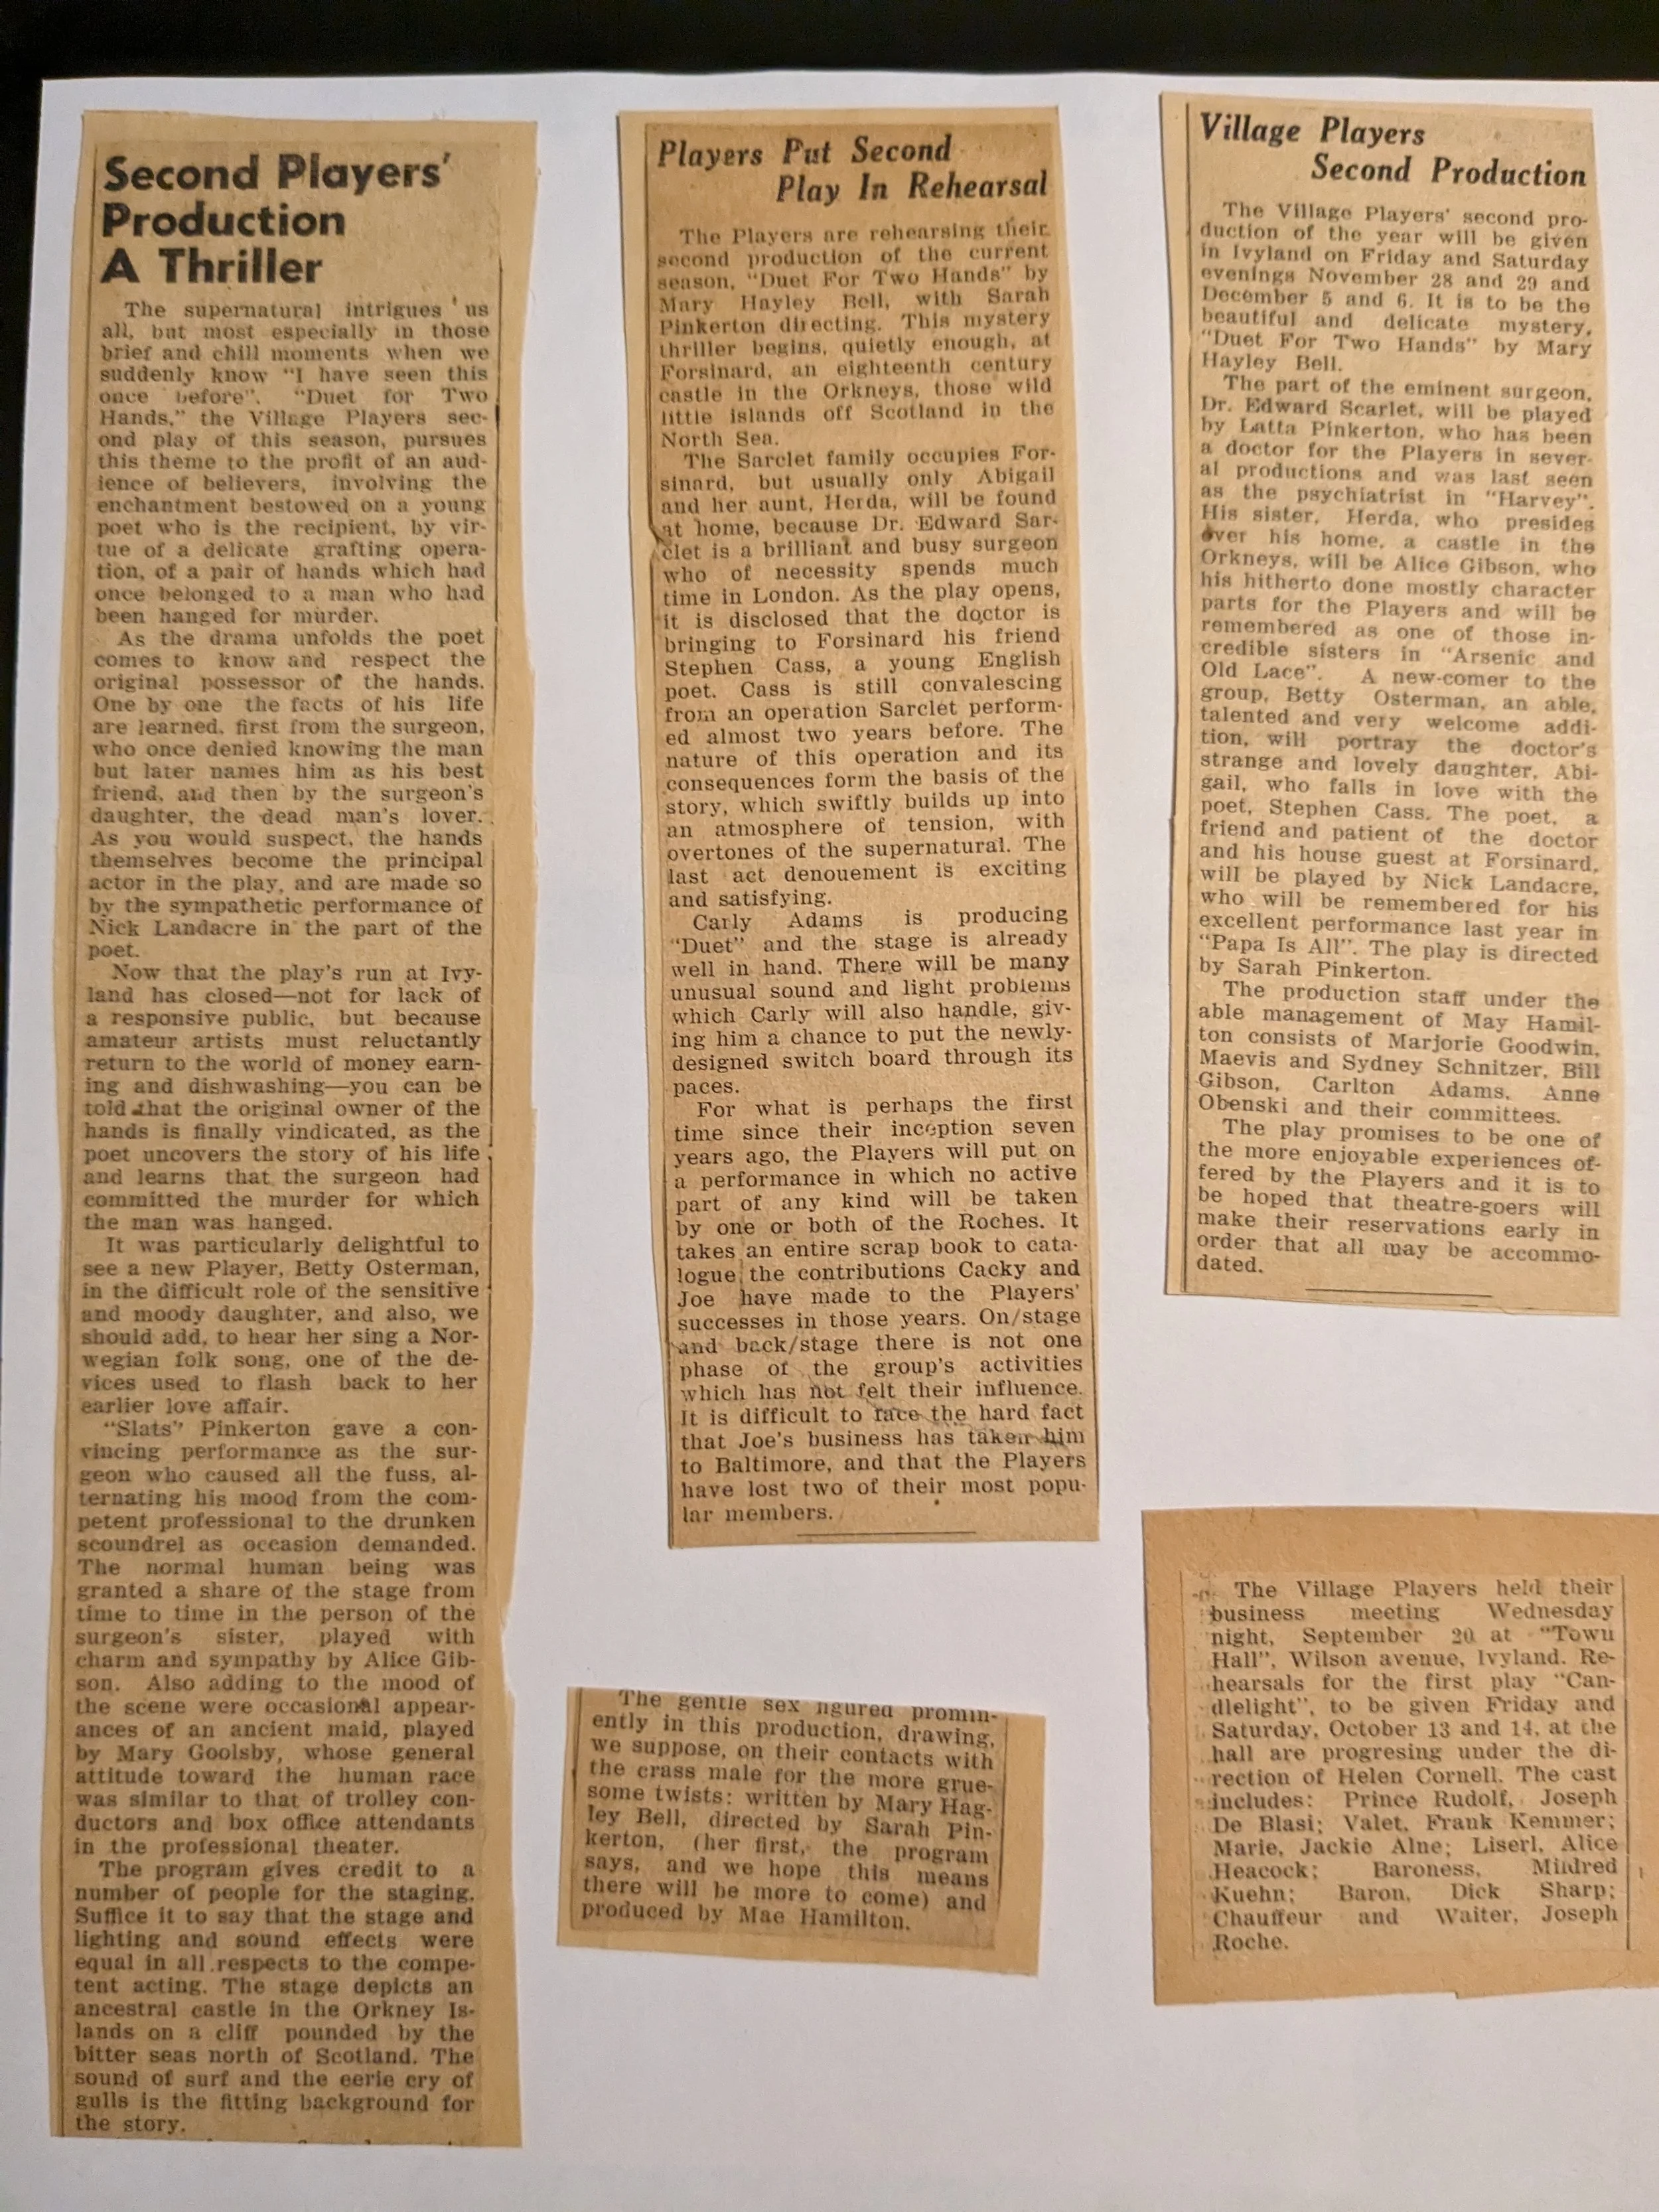 Second Players'
Production
A Thriller
The supernatural intrigues us
all, but most especially in those
brief and chill moments when we
suddenly know "I have seen this
once before". "Duet for Two
Hands," the Village Players sec-
ond play of this season, pursues
this theme to the profit of an aud-
ience of believers, involving the
enchantment bestowed on a young
poet who is the recipient, by vir-
tue of a delicate grafting opera-
tion, of a pair of hands which had
once belonged to a man who had
been hanged for murder.
As the drama unfolds the poet
comes to know and respect the
original possessor of the hands.
One by one the facts of his life
are learned, first from the surgeon,
who once denied knowing the man
but later names him as his best
friend, and then by the surgeon's
daughter, the dead man's lover.
As you would suspect, the hands
themselves become the principal
actor in the play, and are made so
by the sympathetic performance of
Nick Landacre in the part of the
poet.
Now that the play's run at Ivy-
land has closed—not for lack of
a responsive public, but because
amateur artists must reluctantly
return to the world of money earn-
ing and dishwashing—you can be
told that the original owner of the
hands is finally vindicated, as the
poet uncovers the story of his life
and learns that the surgeon had
committed the murder for which
the man was hanged.
It was particularly delightful to
see a new Player, Betty Osterman,
in the difficult role of the sensitive
and moody daughter, and also, we
should add, to hear her sing a Nor-
wegian folk song, one of the de-
vices used to flash back to her
earlier love affair.
"Slats" Pinkerton gave a con-
vincing performance as the sur-
geon who caused all the fuss, al-
ternating his mood from the com-
petent professional to the drunken
scoundrel as occasion demanded.
The normal human being was
granted a share of the stage from
time to time in the person of the
surgeon's sister, played with
charm and sympathy by Alice Gib-
son. Also adding to the mood of
the scene were occasional appear-
ances of an ancient maid, played
by Mary Goolsby, whose general
attitude toward the human race
was similar to that of trolley con-
ductors and box office attendants
in the professional theater.
The program gives credit to a
number of people for the staging.
Suffice it to say that the stage and
lighting and sound effects were
equal in all respects to the compe-
tent acting. The stage depicts an
ancestral castle in the Orkney Is-
lands on a cliff pounded by the
bitter seas north of Scotland. The
sound of surf and the eerie cry of
gulls is the fitting background for
the story.
Players Put Second
Play In Rehearsal
The Players are rehearsing their
second production of the current
season, "Duet For Two Hands" by
Mary Hayley Bell, with Sarah
Pinkerton directing. This mystery
thriller begins, quietly enough, at
Forsinard, an eighteenth century
castle in the Orkneys, those wild
little islands off Scotland in the
North Sea.
The Sarclet family occupies For-
sinard, but usually only Abigail
and her aunt, Herda, will be found
at home, because Dr. Edward Sar-
clet is a brilliant and busy surgeon
who of necessity spends much
time in London. As the play opens,
it is disclosed that the doctor is
bringing to Forsinard his friend
Stephen Cass, a young English
poet. Cass is still convalescing
from an operation Sarclet perform-
ed almost two years before. The
nature of this operation and its
consequences form the basis of the
story, which swiftly builds up into
an atmosphere of tension, with
overtones of the supernatural. The
last act denouement is exciting
and satisfying.
Carly Adams is producing
"Duet" and the stage is already
well in hand. There will be many
unusual sound and light problems
which Carly will also handle, giv-
ing him a chance to put the newly-
designed switch board through its
paces.
For what is perhaps the first
time since their inception seven
years ago, the Players will put on
a performance in which no active
part of any kind will be taken
by one or both of the Roches. It
takes an entire scrap book to cata-
logue the contributions Cacky and
Joe have made to the Players'
successes in those years. On/stage
and back/stage there is not one
phase of the group's activities
which has not felt their influence.
It is difficult to face the hard fact
that Joe's business has taken him
to Baltimore, and that the Players
have lost two of their most popu-
lar members.
The gentle sex figured promin-
ently in this production, drawing,
we suppose, on their contacts with
the crass male for the more grue-
some twists: written by Mary Hag-
ley Bell, directed by Sarah Pin-
kerton, (her first, the program
says, and we hope this means
there will be more to come) and
produced by Mae Hamilton.
Village Players
Second Production
The Village Players' second pro-
duction of the year will be given
in Ivyland on Friday and Saturday
evenings November 28 and 29 and
December 5 and 6. It is to be the
beautiful and delicate mystery,
"Duet For Two Hands" by Mary
Hayley Bell.
The part of the eminent surgeon,
Dr. Edward Scarlet, will be played
by Latta Pinkerton, who has been
a doctor for the Players in sever-
al productions and was last seen
as the psychiatrist in "Harvey".
His sister, Herda, who presides
over his home, a castle in the
Orkneys, will be Alice Gibson, who
his hitherto done mostly character
parts for the Players and will be
remembered as one of those in-
credible sisters in "Arsenic and
Old Lace". A new-comer to the
group, Betty Osterman, an able,
talented and very welcome addi-
tion, will portray the doctor's
strange and lovely daughter, Abi-
gail, who falls in love with the
poet, Stephen Cass. The poet, a
friend and patient of the doctor
and his house guest at Forsinard,
will be played by Nick Landacre,
who will be remembered for his
excellent performance last year in
"Papa Is All". The play is directed
by Sarah Pinkerton.
The production staff under the
able management of May Hamil-
ton consists of Marjorie Goodwin,
Maevis and Sydney Schnitzer, Bill
Gibson, Carlton Adams, Anne
Obenski and their committees.
The play promises to be one of
the more enjoyable experiences of-
fered by the Players and it is to
be hoped that theatre-goers will
make their reservations early in
order that all may be accommo-
dated.
The Village Players held their
business meeting Wednesday
night, September 20 at "Town
Hall", Wilson avenue, Ivyland. Re-
hearsals for the first play "Can-
dlelight", to be given Friday and
Saturday, October 13 and 14, at the
hall are progresing under the di-
rection of Helen Cornell. The cast
includes: Prince Rudolf, Joseph
De Blasi; Valet, Frank Kemmer;
Marie, Jackie Alne; Liserl, Alice
Heacock; Baroness, Mildred
Kuehn; Baron, Dick Sharp;
Chauffeur and Waiter, Joseph
Roche.